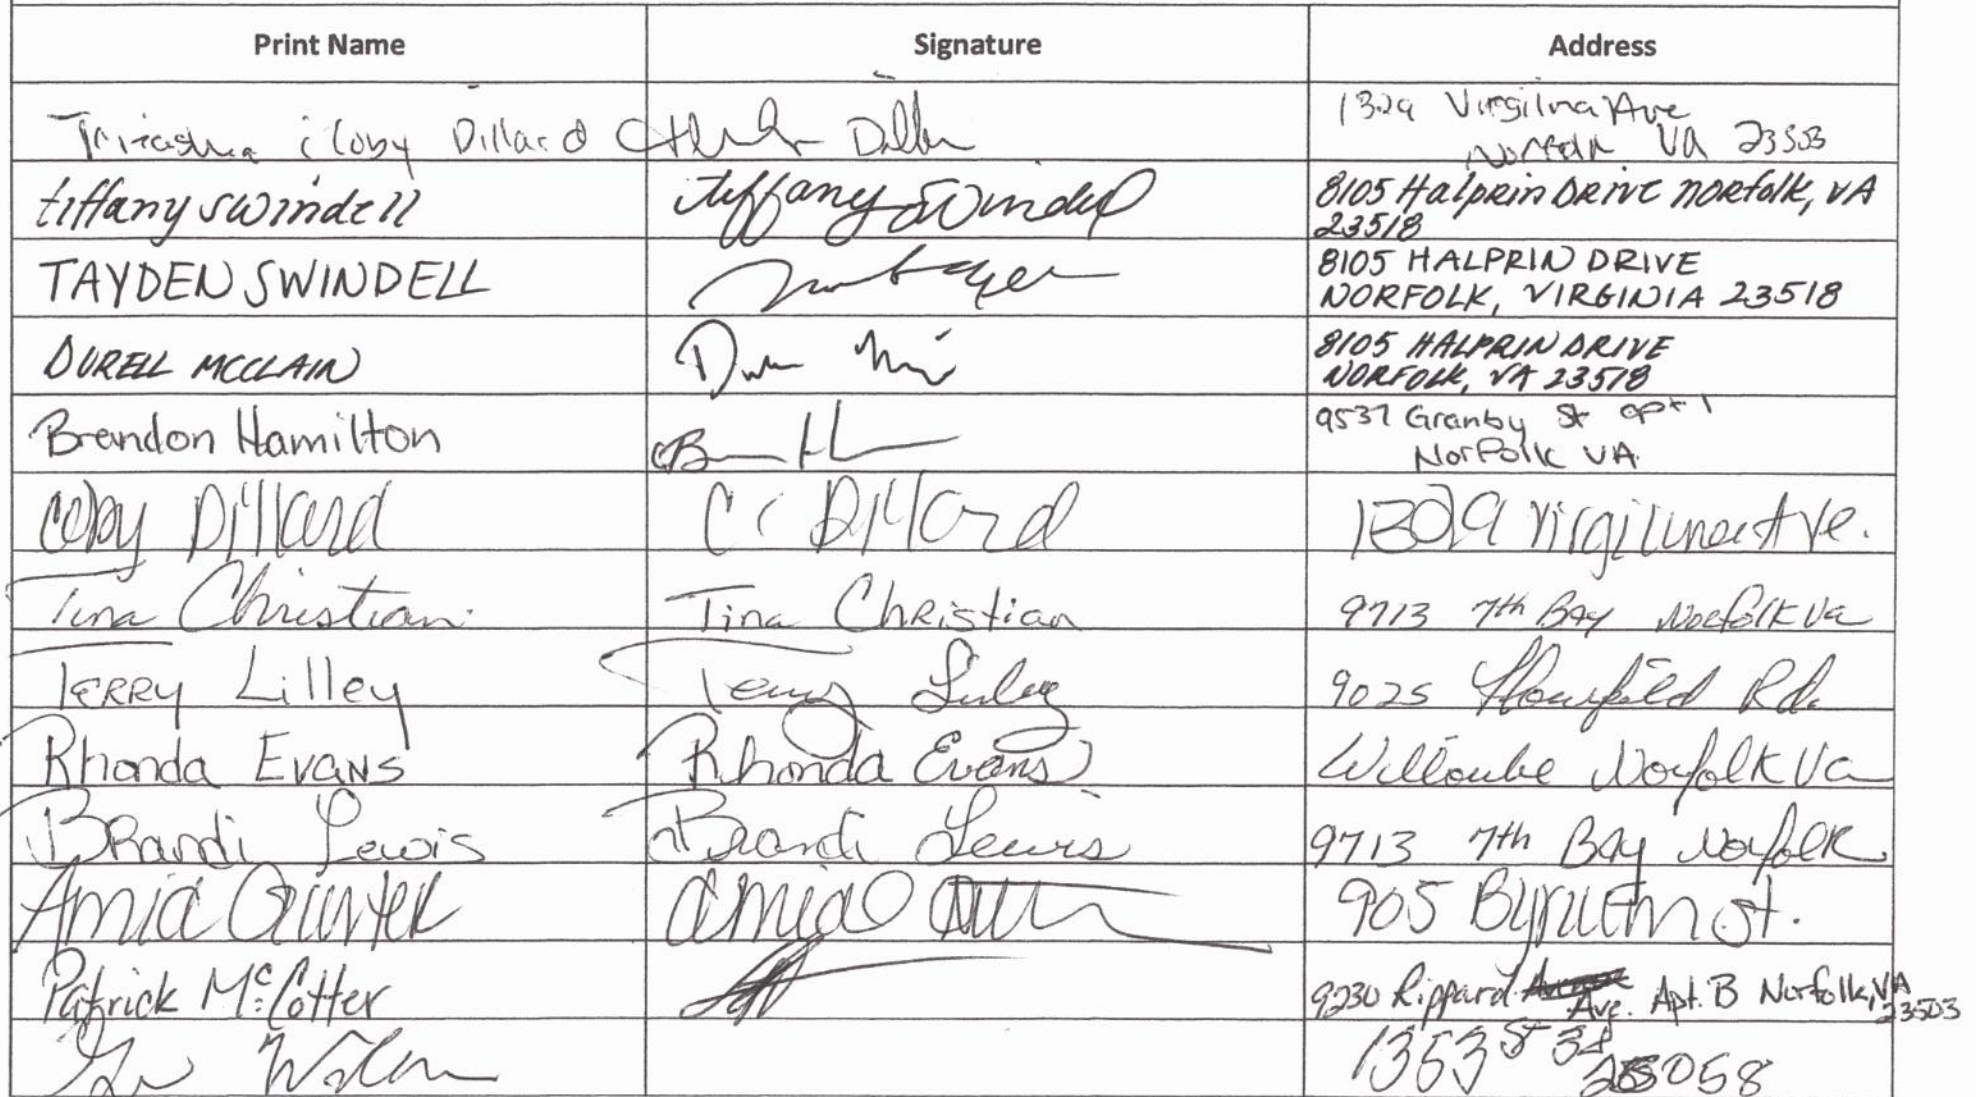 Print Name Signature Address
Dillard 1329 Virgilina Ave
Norfolk VA 23503
tiffany swindell tiffany Swindell 8105 Halprin DRIVE NORfolk, VA
23518
TAYDEN SWINDELL 8105 HALPRIN DRIVE
NORFOLK, VIRGINIA 23518
DURELL MCCLAIN 8105 HALPRIN DRIVE
NORFOLK, VA 23518
Brandon Hamilton 9537 Granby St apt 1
Norfolk VA
Coby Dillard C Dillard 1329 Virgilina Ave.
Tina Christian Tina Christian 9713 7th BAy Norfolk Va
TERRY Lilley Terry Lilley 9025 Rd.
Rhonda EVANS Rhonda Evans Willoube Norfolk Va
BRandi Lewis Brandi Lewis 9713 7th BAy Norfolk
Amia Amia 905 St.
Patrick McCotter 9230 Rippard Ave. Apt. B Norfolk, VA
23503
1353